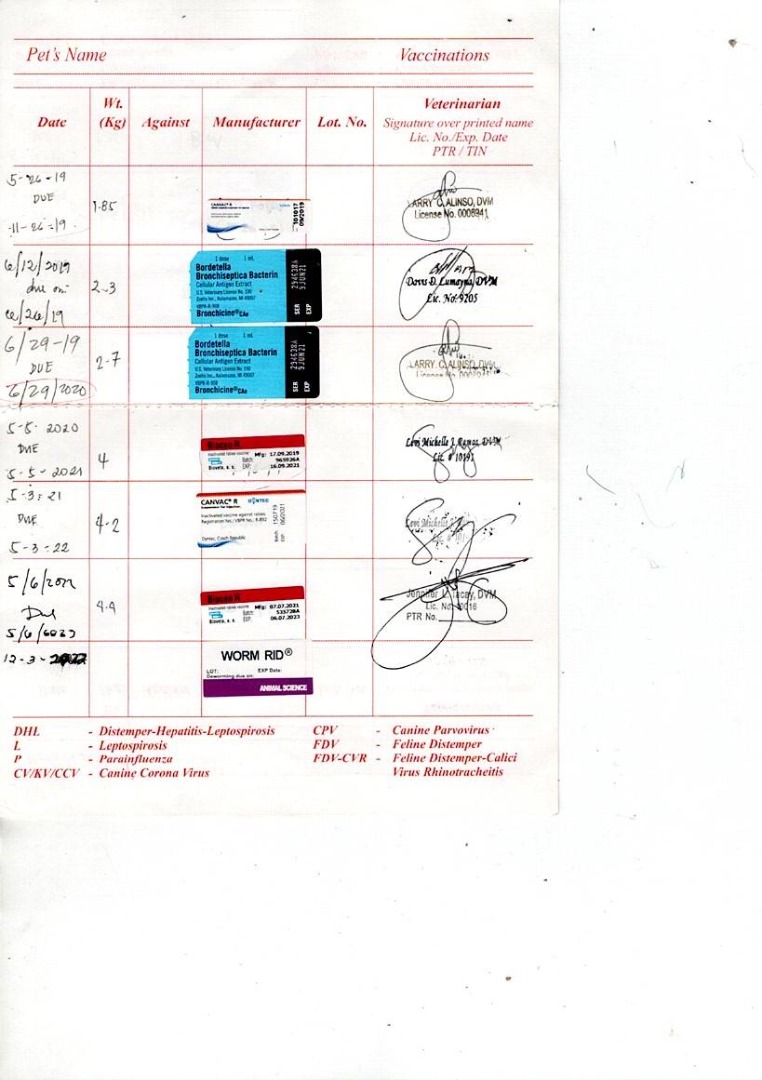 Pet's Name Vaccinations
Date Wt. (Kg) Against Manufacturer Lot. No. Veterinarian
Signature over printed name
Lic. No./Exp. Date
PTR / TIN
5-26-19
DUE
11-26-19
1.85
CANVAC® R
101017
09/2019
LARRY C. ALINSO, DVM
License No. 0008941
6/12/2019
due on
6/26/19
2-3
1 dose 1 mL
Bordetella
Bronchiseptica Bacterin
Cellular Antigen Extract
U.S. Veterinary License No. 190
Zoetis Inc., Kalamazoo, MI 49007
VBPR-R-908
Bronchicine®CAe
SER 294638A
EXP 9JUN21
Doris D. Lumayna, DVM
Lic. No. 9205
6/29-19
DUE
6/29/2020
2-7
1 dose 1 mL
Bordetella
Bronchiseptica Bacterin
Cellular Antigen Extract
U.S. Veterinary License No. 190
Zoetis Inc., Kalamazoo, MI 49007
VBPR-R-908
Bronchicine®CAe
SER 294638A
EXP 9JUN21
LARRY C. ALINSO, DVM
License No.
5-5-2020
DUE
5-5-2021
4
Biocan R
Inactivated rabies vaccine
Mfg: 17.09.2019
Batch: 965926A
Bioveta, a. s. EXP: 16.09.2021
Levi Michelle J. Ramos, DVM
Lic. # 10191
5-3-21
DUE
5-3-22
4-2
CANVAC® R DYNTEC
Suspension for injection.
Inactivated vaccine against rabies
Dyntec, Czech Republic
Batch 150719
EXP 06/2021
Levi Michelle J.
5/6/2022
Due
5/6/2023
4.4
Biocan R
Inactivated rabies vaccine
Mfg: 07.07.2021
Batch: 535728A
Bioveta, a. s. EXP: 06.07.2023
Jennifer L. Tacay, DVM
Lic. No. 10016
PTR No.
12-3-2022
WORM RID®
LOT: EXP Date:
Deworming due on:
ANIMAL SCIENCE
DHL - Distemper-Hepatitis-Leptospirosis CPV - Canine Parvovirus
L - Leptospirosis FDV - Feline Distemper
P - Parainfluenza FDV-CVR - Feline Distemper-Calici
CV/KV/CCV - Canine Corona Virus Virus Rhinotracheitis